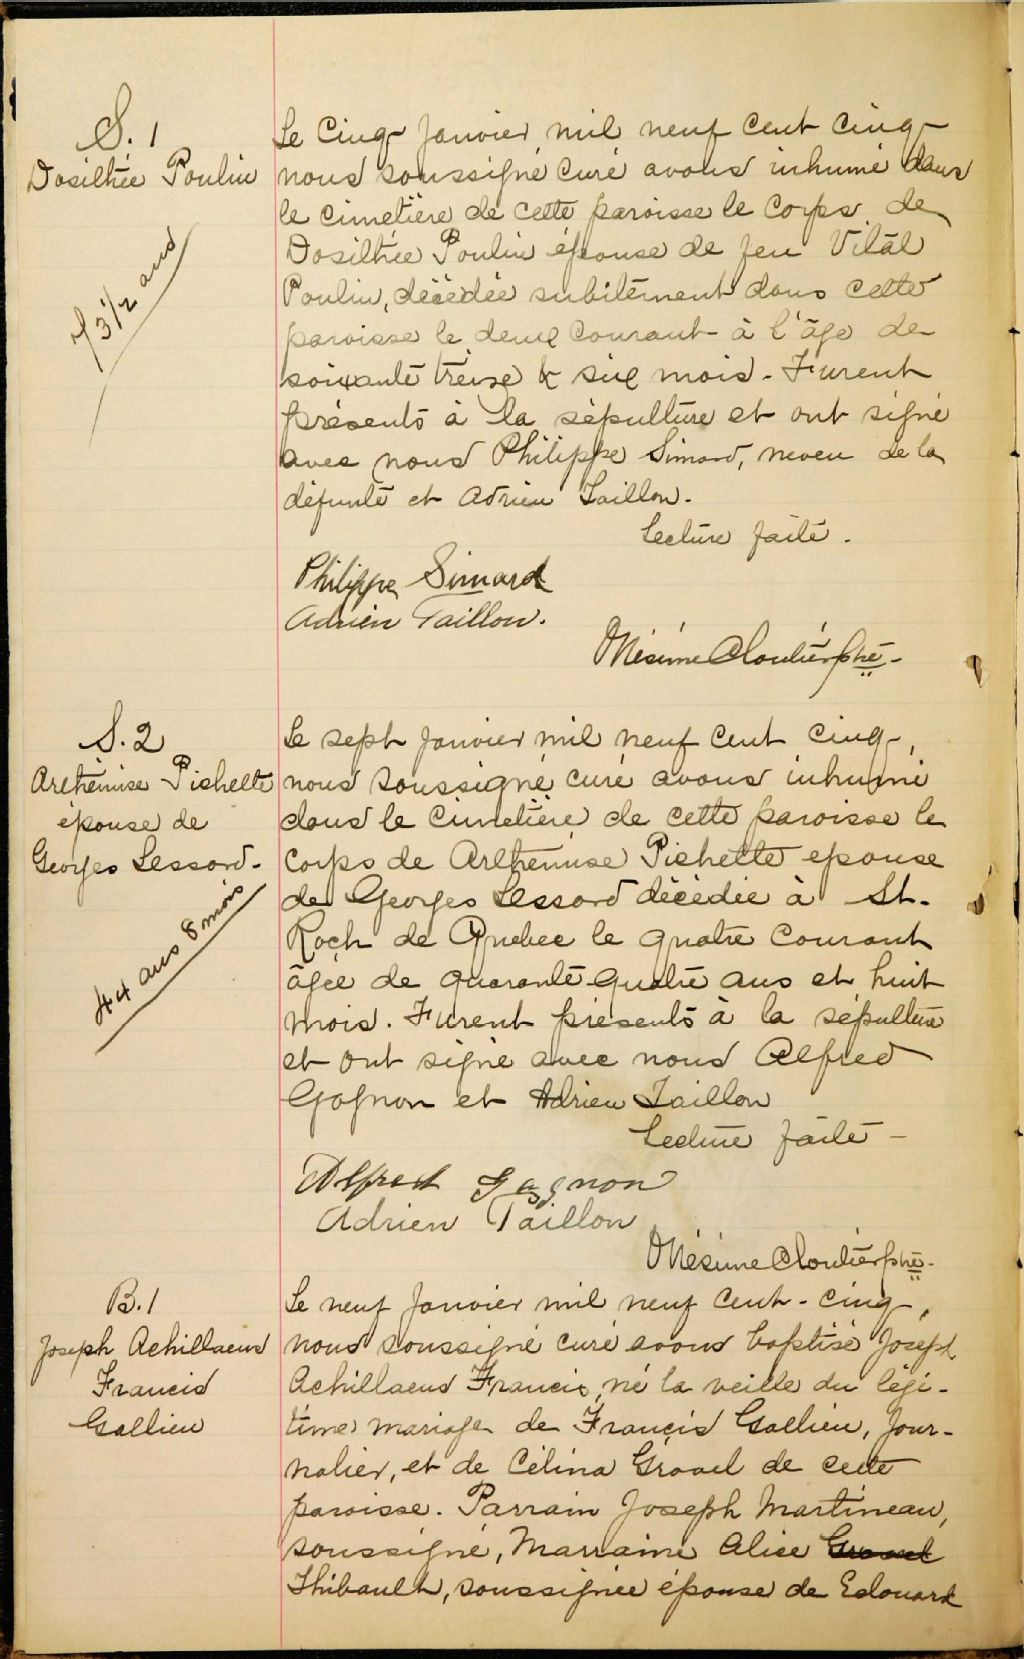 S. 1
Dosilhée Poulin
73 1/2 ans
Le cinq Janvier mil neuf cent cinq
nous soussigné curé avons inhumé dans
le cimetière de cette paroisse le corps de
Dosilhée Poulin épouse de feu Vital
Poulin, décédée subitement dans cette
paroisse le deux courant à l'âge de
soixante treize & six mois. Furent
présents à la sépulture et ont signé
avec nous Philippe Simard, neveu de la
défunte et Adrien Taillon.
Lecture faite.
Philippe Simard
Adrien Taillon.
Onésime Cloutier ptre
S. 2
Arthémise Pichette
épouse de
Georges Lessard.
44 ans 8 mois
Le sept Janvier mil neuf cent cinq,
nous soussigné curé avons inhumé
dans le cimetière de cette paroisse le
corps de Arthémise Pichette épouse
de Georges Lessard décédée à St.
Roch de Quebec le quatre courant
âgée de quarante-quatre ans et huit
mois. Furent présents à la sépulture
et ont signé avec nous Alfred
Gagnon et Adrien Taillon
Lecture faite -
Alfred Gagnon
Adrien Taillon
Onésime Cloutier ptre
B. 1
Joseph Achillaeus
Francis
Gallien
Le neuf Janvier mil neuf cent-cinq,
nous soussigné curé avons baptisé Joseph
Achillaeus Francis, né la veille du légi-
time mariage de Francis Gallien, jour-
nalier, et de Célina Gravel de cette
paroisse. Parrain Joseph Martineau,
soussigné, Marraine Alice Gravel
Thibault, soussignée épouse de Edouard